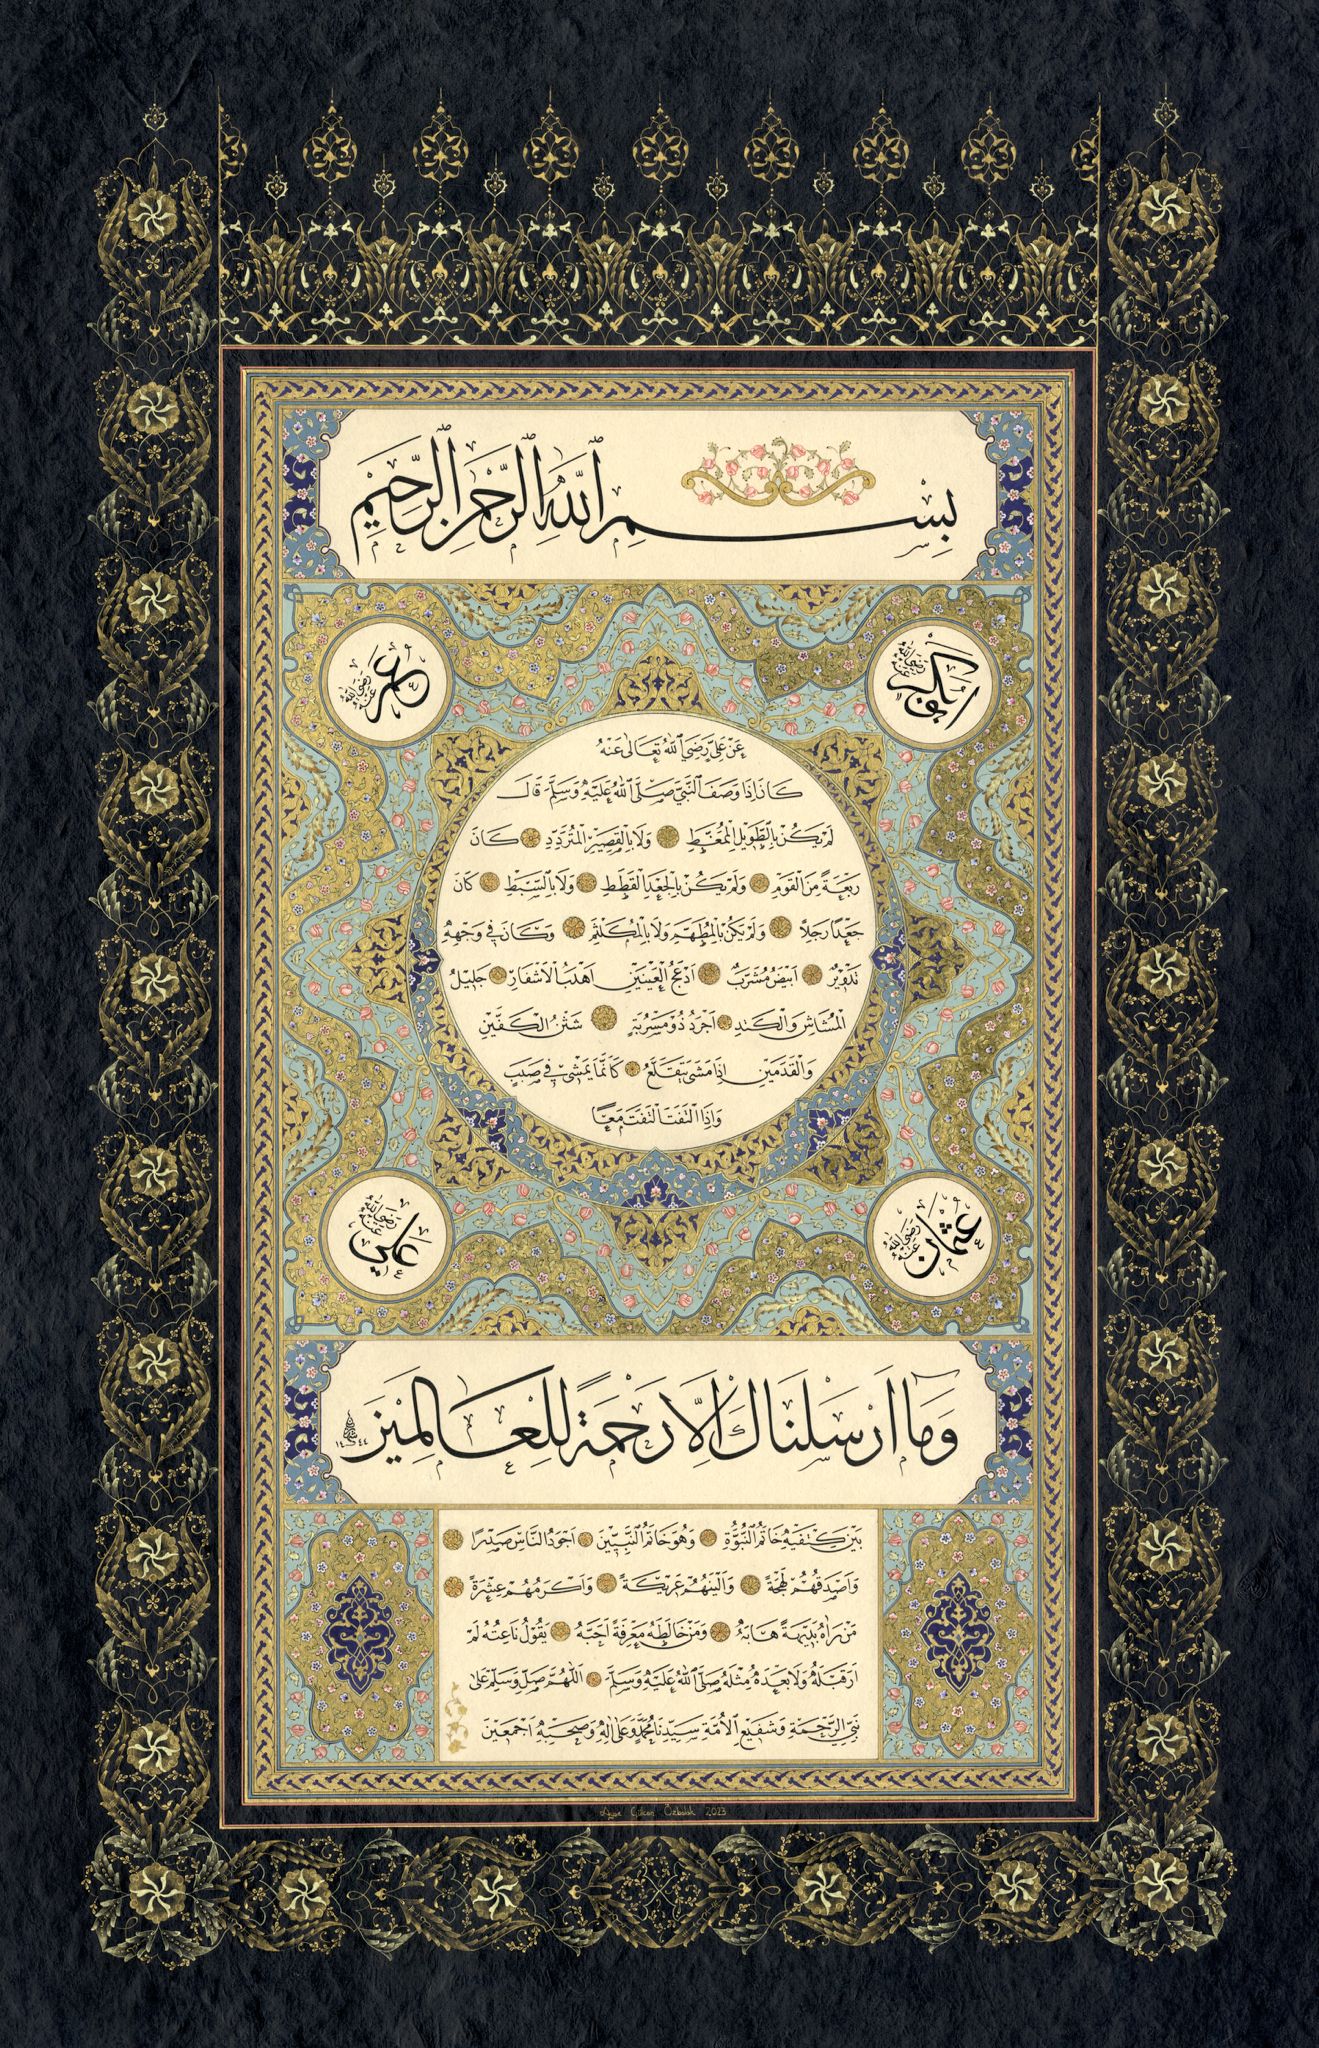 بِسْمِ اللّٰهِ الرَّحْمٰنِ الرَّحِيْمِ
ابوبكر رَضِيَ اللّٰهُ عَنْهُ
عُمَر رَضِيَ اللّٰهُ عَنْهُ
عَنْ عَلِيٍّ رَضِيَ اللّٰهُ تَعَالٰى عَنْهُ
كَانَ اِذَا وَصَفَ النَّبِيَّ صَلَّى اللّٰهُ عَلَيْهِ وَسَلَّمَ قَالَ
لَمْ يَكُنْ بِالطَّوِيْلِ الْمُمَّغِطِ وَلَا بِالْقَصِيْرِ الْمُتَرَدِّدِ كَانَ
رَبْعَةً مِنَ الْقَوْمِ وَلَمْ يَكُنْ بِالْجَعْدِ الْقَطَطِ وَلَا بِالسَّبْطِ كَانَ
جَعْدًا رَجِلًا وَلَمْ يَكُنْ بِالْمُطَهَّمِ وَلَا بِالْمُكَلْثَمِ وَكَانَ فِي وَجْهِهِ
تَدْوِيْرٌ اَبْيَضُ مُشْرَبٌ اَدْعَجُ الْعَيْنَيْنِ اَهْدَبُ الْاَشْفَارِ جَلِيْلُ
الْمُشَاشِ وَالْكَتَدِ اَجْرَدُ ذُو مَسْرُبَةٍ شَثْنُ الْكَفَّيْنِ
وَالْقَدَمَيْنِ اِذَا مَشٰى يَتَقَلَّعُ كَاَنَّمَا يَمْشِيْ فِي صَبَبٍ
وَاِذَا الْتَفَتَ الْتَفَتَ مَعًا
عُثْمَان رَضِيَ اللّٰهُ عَنْهُ
عَلِي رَضِيَ اللّٰهُ عَنْهُ
وَمَا اَرْسَلْنَاكَ اِلَّا رَحْمَةً لِلْعَالَمِيْنَ
١٤٤٤
بَيْنَ كَتِفَيْهِ خَاتَمُ النُّبُوَّةِ وَهُوَ خَاتَمُ النَّبِيِّيْنَ اَجْوَدُ النَّاسِ صَدْرًا
وَاَصْدَقُهُمْ لَهْجَةً وَاَلْيَنُهُمْ عَرِيْكَةً وَاَكْرَمُهُمْ عِشْرَةً
مَنْ رَاٰهُ بَدِيْهَةً هَابَهُ وَمَنْ خَالَطَهُ مَعْرِفَةً اَحَبَّهُ يَقُوْلُ نَاعِتُهُ لَمْ
اَرَ قَبْلَهُ وَلَا بَعْدَهُ مِثْلَهُ صَلَّى اللّٰهُ عَلَيْهِ وَسَلَّمَ اَللّٰهُمَّ صَلِّ وَسَلِّمْ عَلٰى
نَبِيِّ الرَّحْمَةِ وَشَفِيْعِ الْاُمَّةِ سَيِّدِنَا مُحَمَّدٍ وَعَلٰى اٰلِهِ وَصَحْبِهِ اَجْمَعِيْنَ
Ayşe Gülcan Özbalak 2023